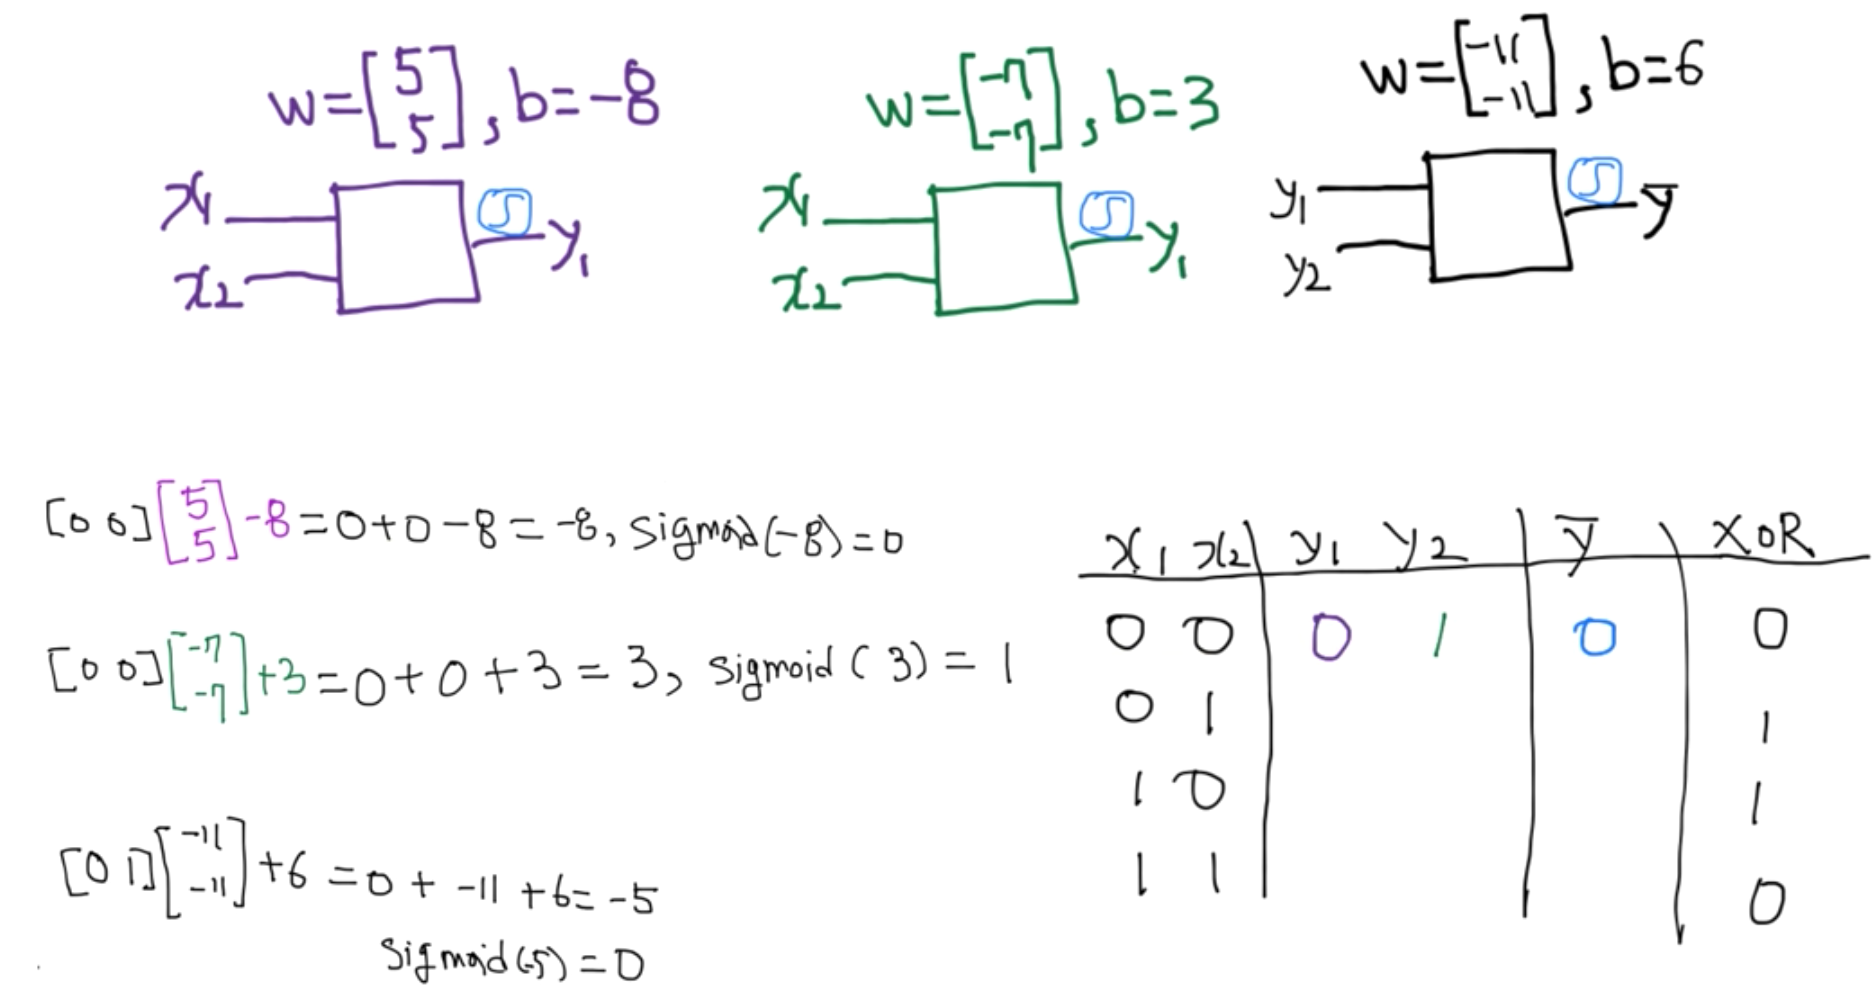 w=[5 5], b=-8
x1
x2
S
y1
w=[-7 -7], b=3
x1
x2
S
y1
w=[-11 -11], b=6
y1
y2
S
ȳ
[0 0][5 5]-8=0+0-8=-8, sigmoid(-8)=0
[0 0][-7 -7]+3=0+0+3=3, sigmoid(3)=1
[0 1][-11 -11]+6=0+-11+6=-5
sigmoid(-5)=0
x1 x2 y1 y2 ȳ XOR
0 0 0 1 0 0
0 1 1
1 0 1
1 1 0